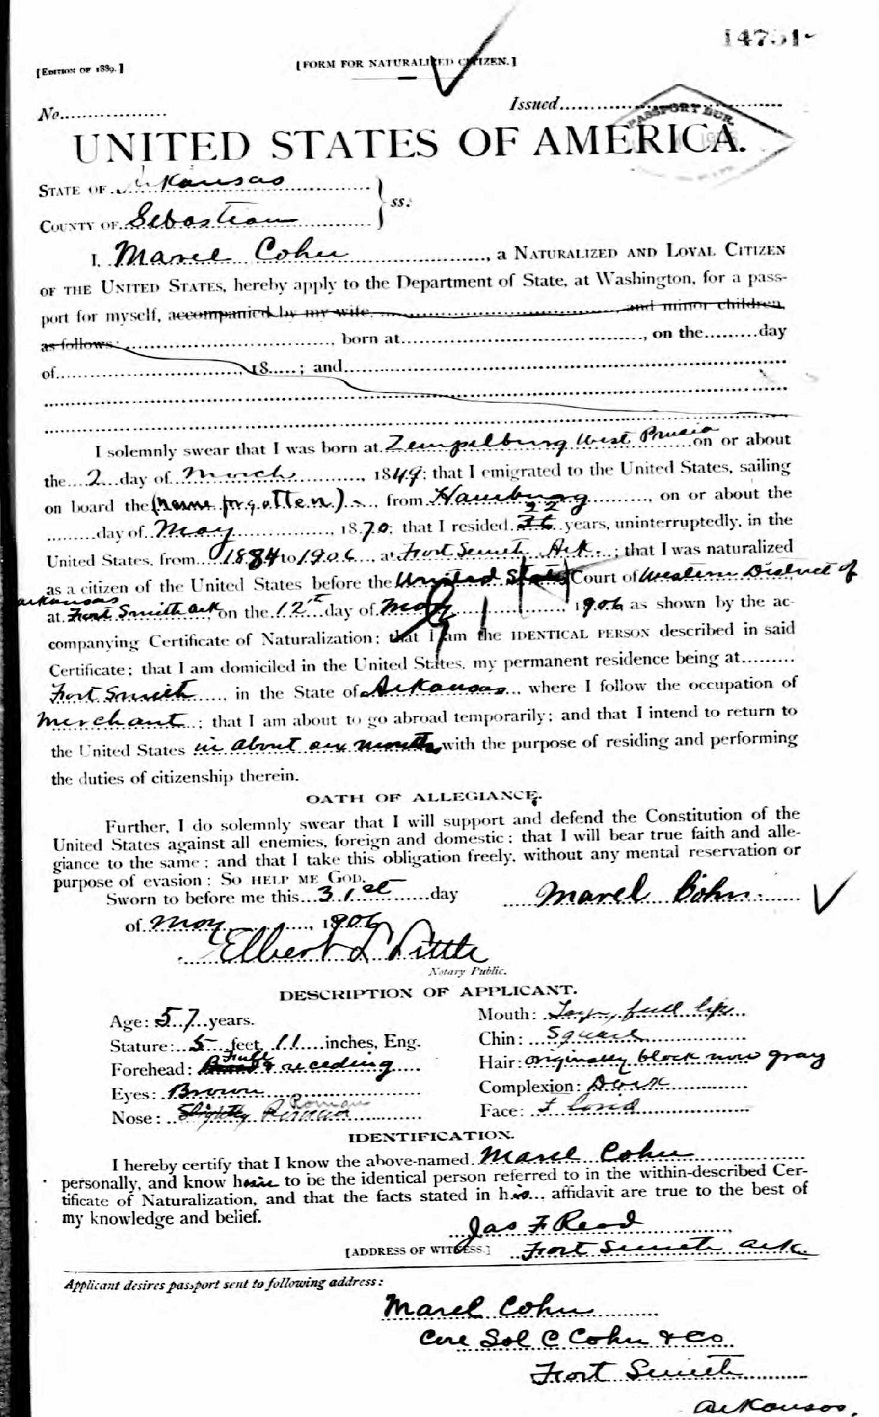 14751
[EDITION OF 1889.]
[FORM FOR NATURALIZED CITIZEN.]
No.
Issued
PASSPORT BUR.
UNITED STATES OF AMERICA.
STATE OF Arkansas
COUNTY OF Sebastian } ss:
I, Marel Cohn, a NATURALIZED AND LOYAL CITIZEN
OF THE UNITED STATES, hereby apply to the Department of State, at Washington, for a pass-
port for myself, accompanied by my wife, and minor children,
as follows: , born at , on the day
of , 18 ; and
I solemnly swear that I was born at Zempelburg West Prucia on or about
the 2 day of March, 1849; that I emigrated to the United States, sailing
on board the (name forgotten), from Hamburg, on or about the
day of May, 1870; that I resided 22 years, uninterruptedly, in the
United States, from 1884 to 1906, at Fort Smith Ark.; that I was naturalized
as a citizen of the United States before the United States Court of Western District of
Arkansas
at Fort Smith Ark, on the 12th day of May, 1906 as shown by the ac-
companying Certificate of Naturalization; that I am the IDENTICAL PERSON described in said
Certificate; that I am domiciled in the United States, my permanent residence being at
Fort Smith, in the State of Arkansas, where I follow the occupation of
Merchant; that I am about to go abroad temporarily; and that I intend to return to
the United States in about six months with the purpose of residing and performing
the duties of citizenship therein.
OATH OF ALLEGIANCE.
Further, I do solemnly swear that I will support and defend the Constitution of the
United States against all enemies, foreign and domestic; that I will bear true faith and alle-
giance to the same; and that I take this obligation freely, without any mental reservation or
purpose of evasion: SO HELP ME GOD.
Sworn to before me this 31st day
Marel Cohn.
of May, 1906
Elbert L Little
Notary Public.
DESCRIPTION OF APPLICANT.
Age: 57 years.
Stature: 5 feet, 11 inches, Eng.
Forehead: Full & receding
Eyes: Brown
Nose: Slightly Roman
Mouth: Large, full lips
Chin: Square
Hair: originally black now gray
Complexion: Dark
Face:
IDENTIFICATION.
I hereby certify that I know the above-named Marel Cohn
personally, and know him to be the identical person referred to in the within-described Cer-
tificate of Naturalization, and that the facts stated in his affidavit are true to the best of
my knowledge and belief.
Jas F Read
[ADDRESS OF WITNESS.] Fort Smith Ark.
Applicant desires passport sent to following address:
Marel Cohn
Care Sol C Cohn & Co
Fort Smith
Arkansas.